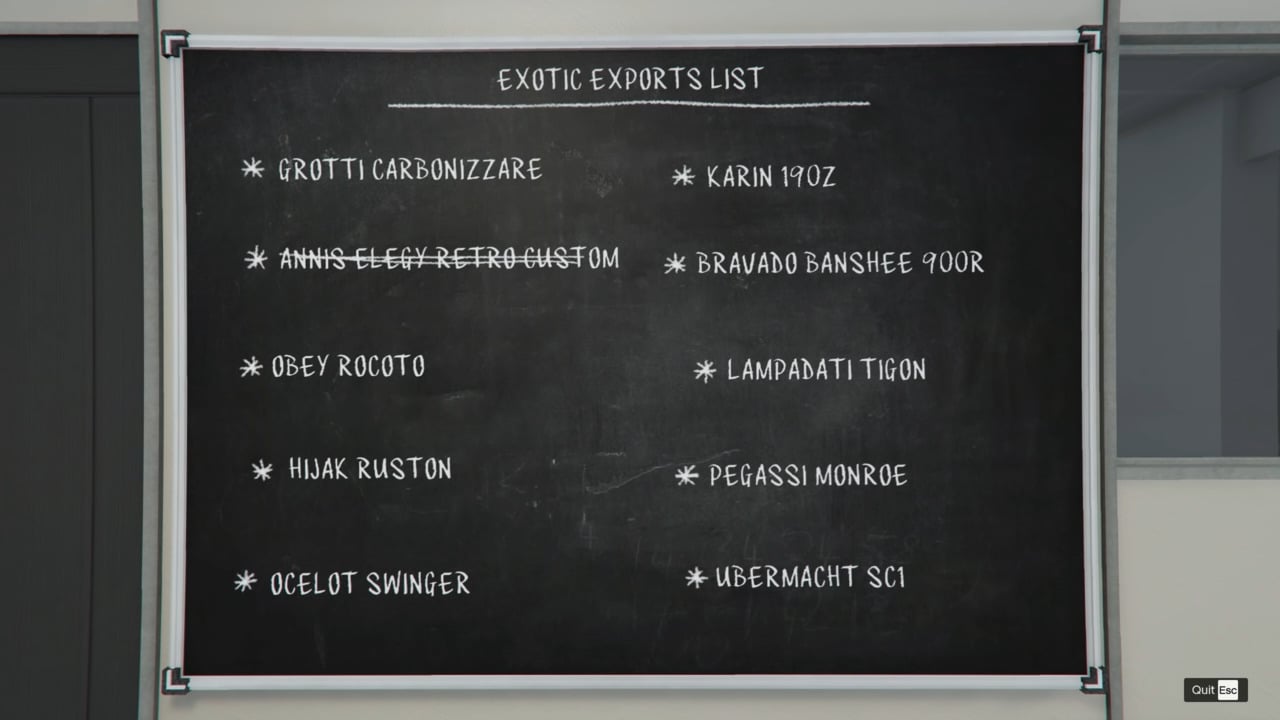 EXOTIC EXPORTS LIST
* GROTTI CARBONIZZARE
* ANNIS ELEGY RETRO CUSTOM
* OBEY ROCOTO
* HIJAK RUSTON
* OCELOT SWINGER
* KARIN 190Z
* BRAVADO BANSHEE 900R
* LAMPADATI TIGON
* PEGASSI MONROE
* UBERMACHT SC1
Quit Esc